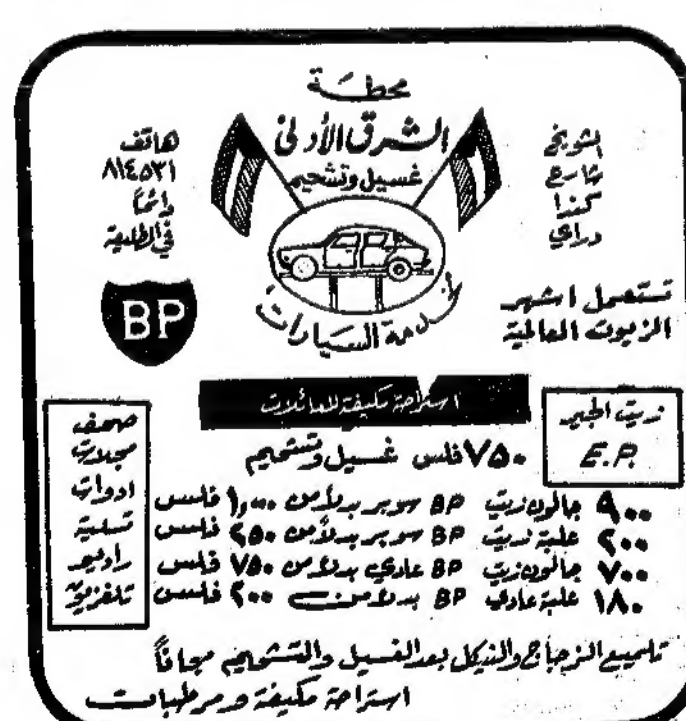 محطة
الشرق الأدنى
غسيل وتشحيم
لخدمة السيارات
الشويخ
شارع
كندا
دراي
هاتف
٨١٤٥٣١
دائماً
في الطليعة
BP
تستعمل اشهر
الزيوت العالمية
استراحة مكيفة للعائلات
زيت الجير
E.P.
صحف
مجلات
ادوات
تسلية
راديو
تلفزيون
٧٥٠ فلس غسيل وتشحيم
٩٠٠ جالون زيت BP سوبر بدلاً من ١,٠٠٠ فلس
٢٠٠ علبة زيت BP سوبر بدلاً من ٢٥٠ فلس
٧٠٠ جالون زيت BP عادي بدلاً من ٧٥٠ فلس
١٨٠ علبة عادي BP بدلاً من ٢٠٠ فلس
تلميع الزجاج والنيكل بعد الغسيل والتشحيم مجاناً
استراحة مكيفة ومرطبات